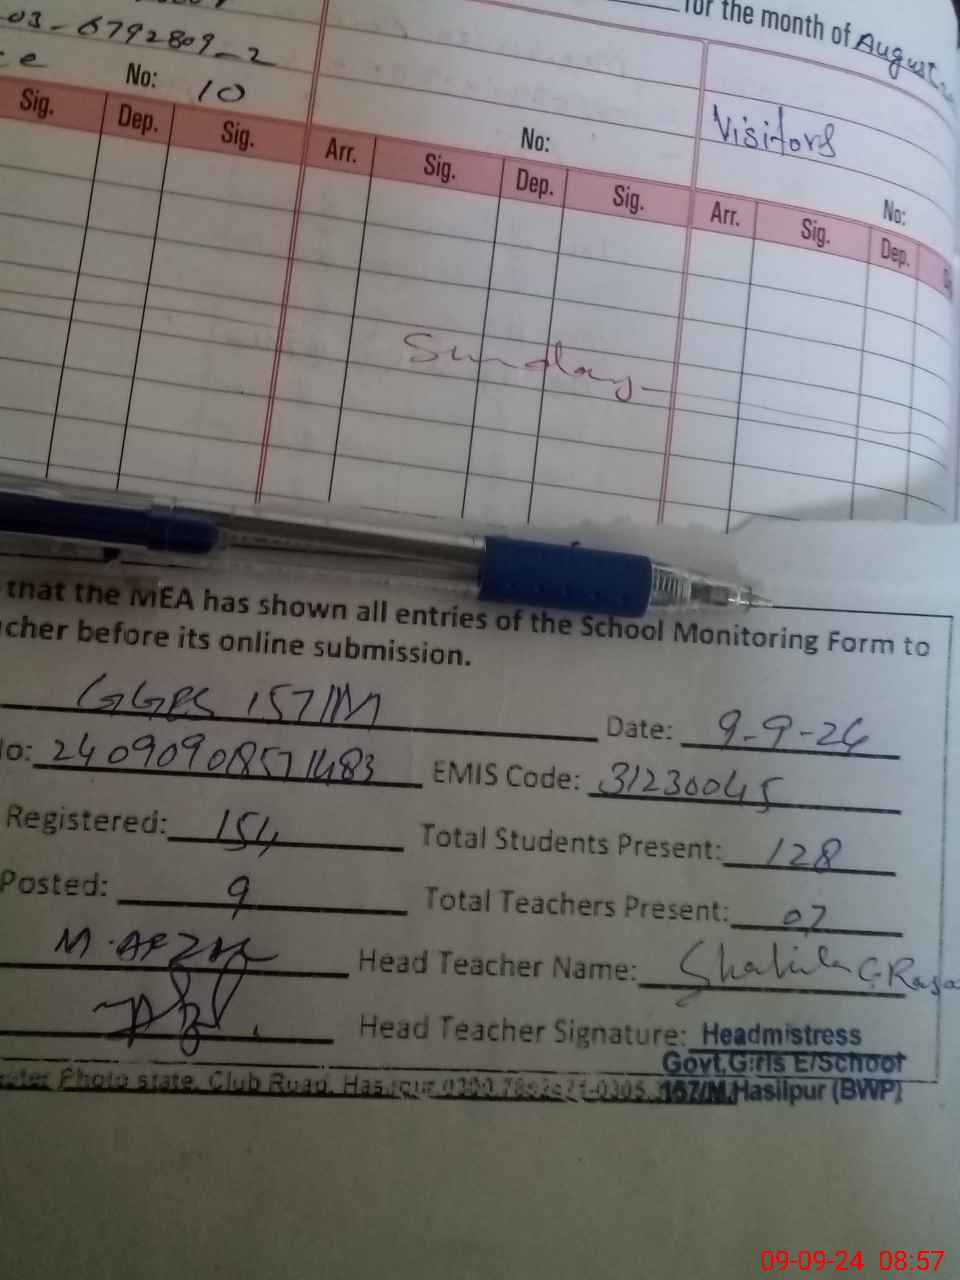 for the month of August
03-6792809-2
ce No: 10
Visitors
No: No:
Sig. Dep. Sig. Arr. Sig. Dep. Sig. Arr. Sig. Dep.
Sunday
that the MEA has shown all entries of the School Monitoring Form to
cher before its online submission.
GGES 157/M Date: 9-9-24
No: 24090908571483 EMIS Code: 31230045
Registered: 154 Total Students Present: 128
Posted: 9 Total Teachers Present: 07
M. AFZAL Head Teacher Name:
Head Teacher Signature: Headmistress
Govt.Girls E/School
Photo state, Club Road, 157/M.Hasilpur (BWP)
09-09-24 08:57